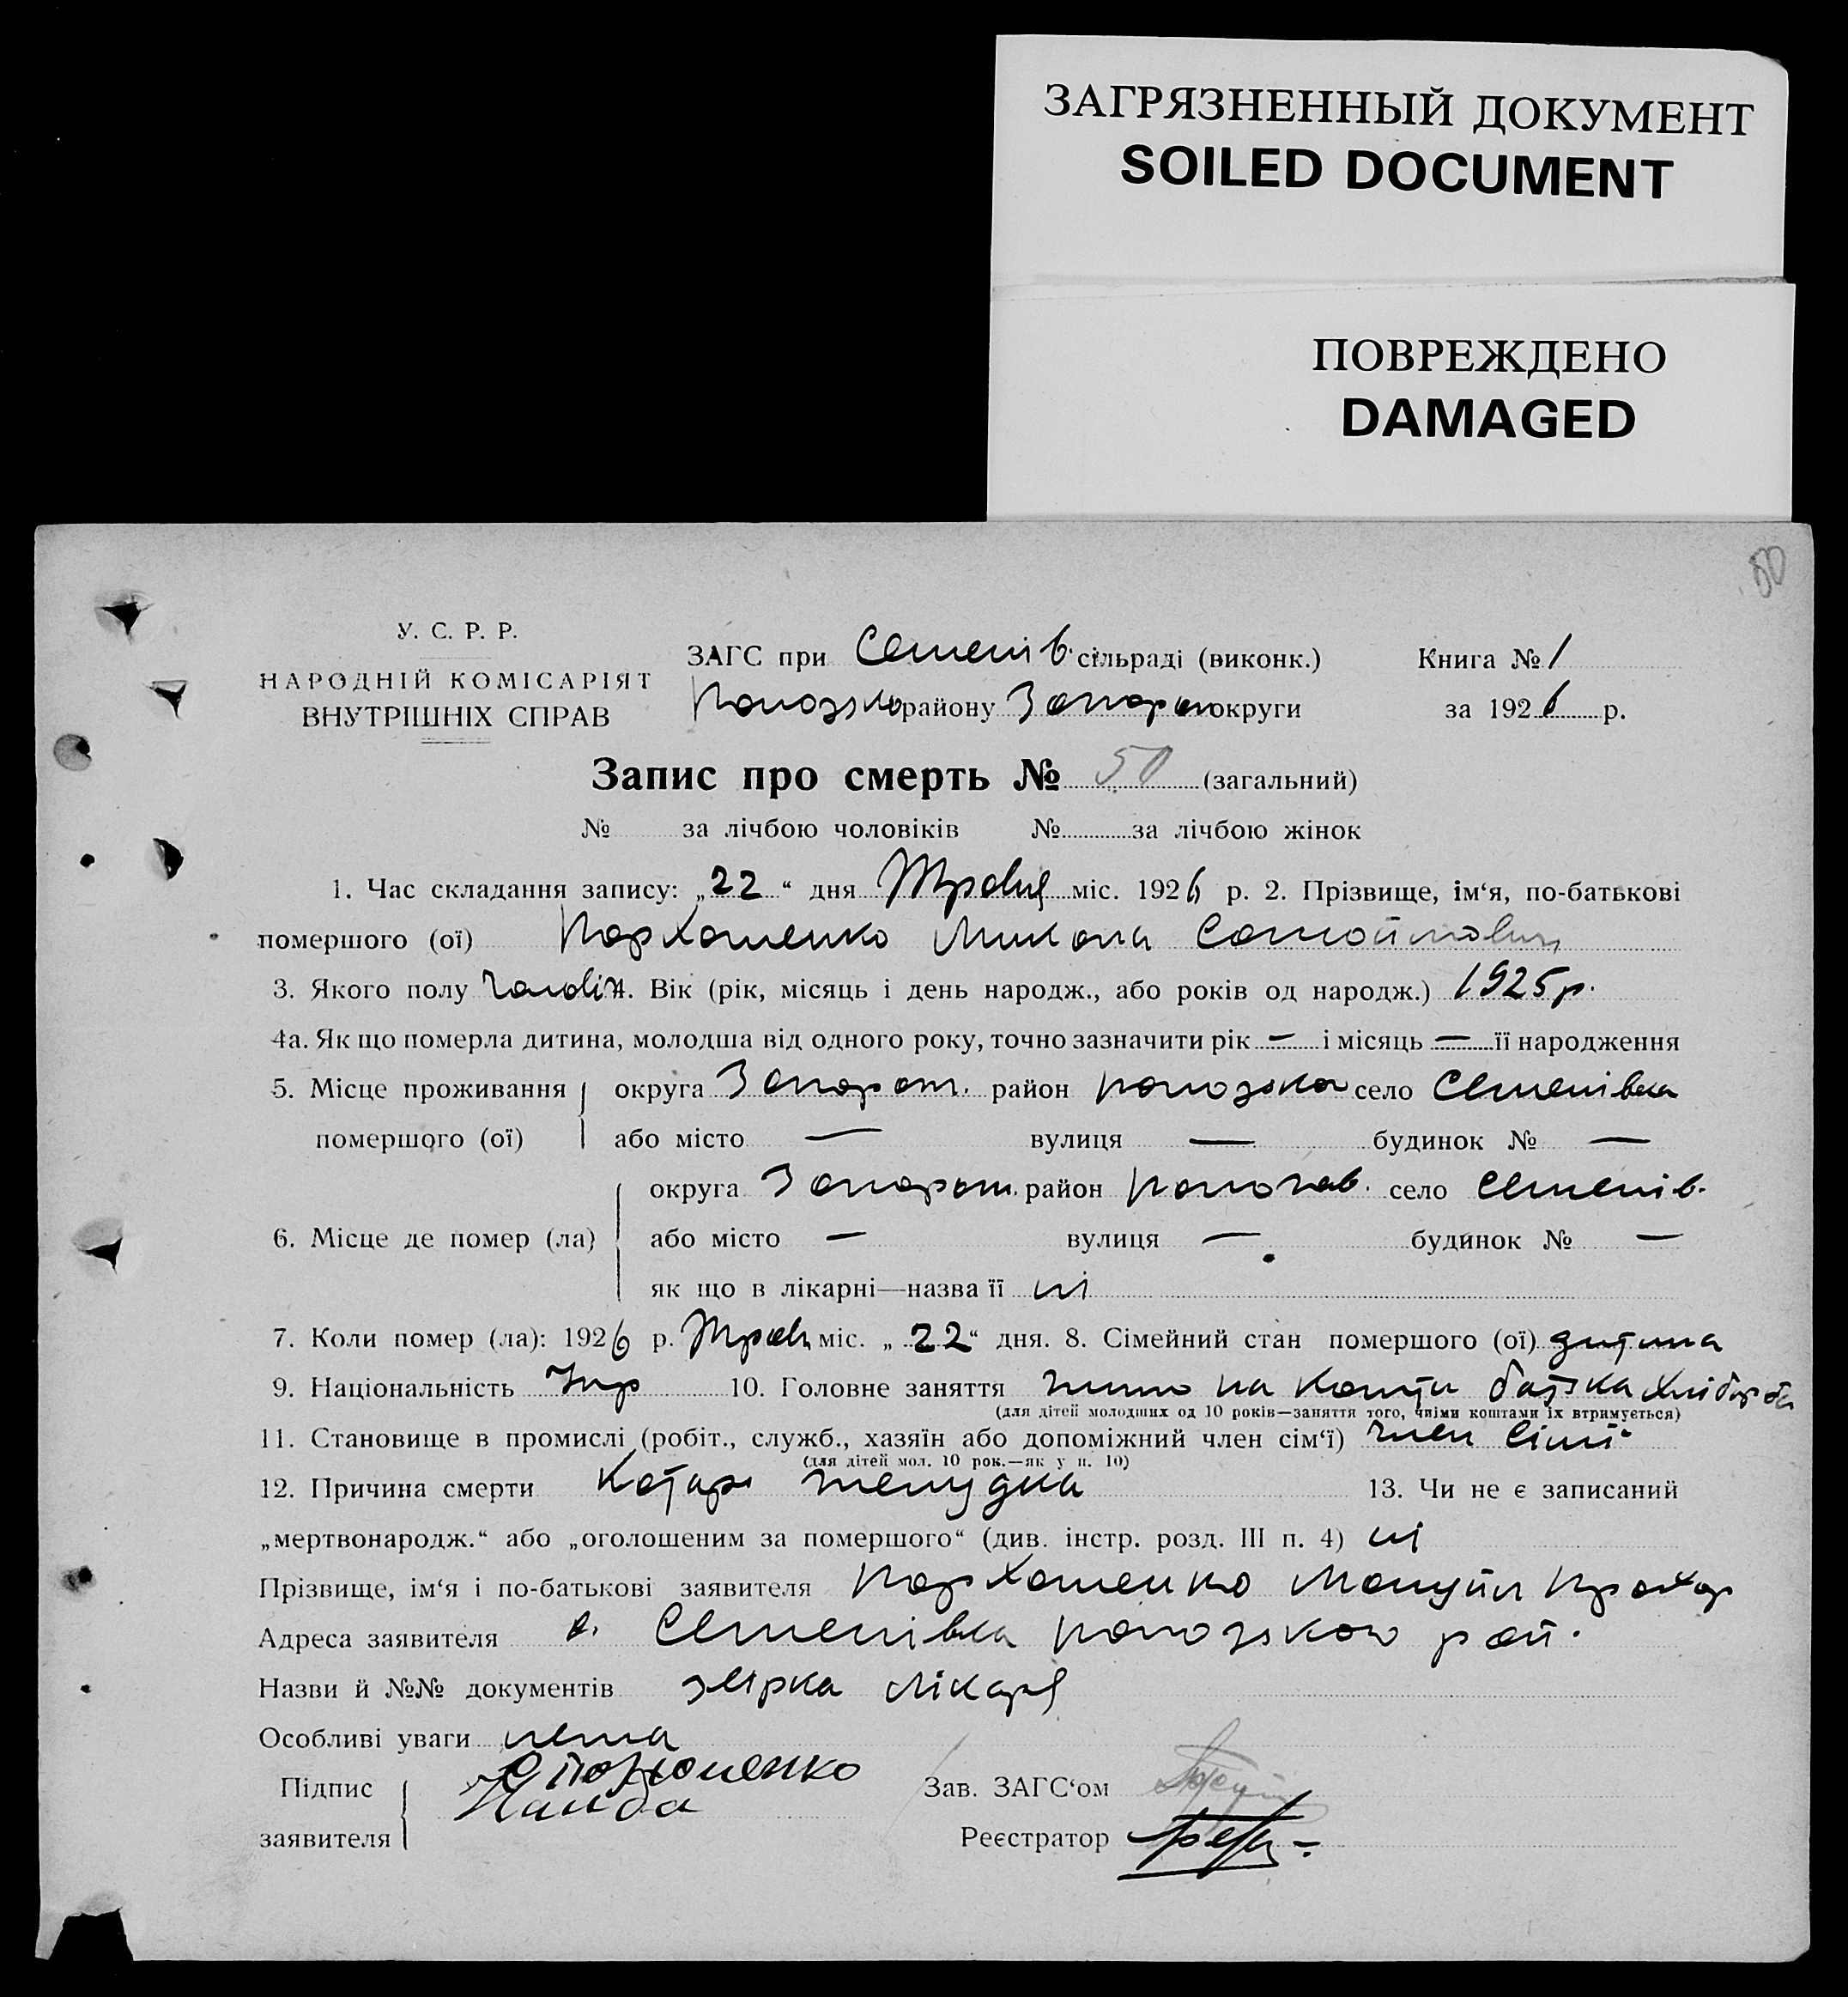 ЗАГРЯЗНЕННЫЙ ДОКУМЕНТ
SOILED DOCUMENT
ПОВРЕЖДЕНО
DAMAGED
50
У. С. Р. Р.
НАРОДНІЙ КОМІСАРІЯТ
ВНУТРІШНІХ СПРАВ
ЗАГС при Семенів. сільраді (виконк.) Книга № 1
району Запорож округи за 1926 р.
Запис про смерть № 50 (загальний)
№ за лічбою чоловіків № за лічбою жінок
1. Час складання запису: „22“ дня Травня міс. 1926 р. 2. Прізвище, ім‘я, по-батькові
помершого (ої) Пархоменко Микола
3. Якого полу чоловіч. Вік (рік, місяць і день народж., або років од народж.) 1925 р.
4а. Як що померла дитина, молодша від одного року, точно зазначити рік — і місяць — її народження
5. Місце проживання округа Запорож. район село Семенівка
помершого (ої) або місто — вулиця — будинок № —
округа Запорож. район село Семенів.
6. Місце де помер (ла) або місто — вулиця — будинок № —
як що в лікарні—назва її ні
7. Коли помер (ла): 1926 р. Травн міс. „22“ дня. 8. Сімейний стан помершого (ої) дитина
9. Національність Укр 10. Головне заняття на кошти батька хлібороба
(для дітей молодших од 10 років—заняття того, чиїми коштами їх втримується)
11. Становище в промислі (робіт., служб., хазяїн або допоміжний член сім‘ї) член сімї
(для дітей мол. 10 рок.—як у п. 10)
12. Причина смерти Катар желудка 13. Чи не є записаний
„мертвонародж.“ або „оголошеним за помершого“ (див. інстр. розд. III п. 4) ні
Прізвище, ім‘я і по-батькові заявителя Пархоменко Прохор
Адреса заявителя с. Семенівка рай.
Назви й №№ документів лікаря
Особливі уваги нема
Підпис Пархоменко
заявителя
Зав. ЗАГС‘ом
Реєстратор